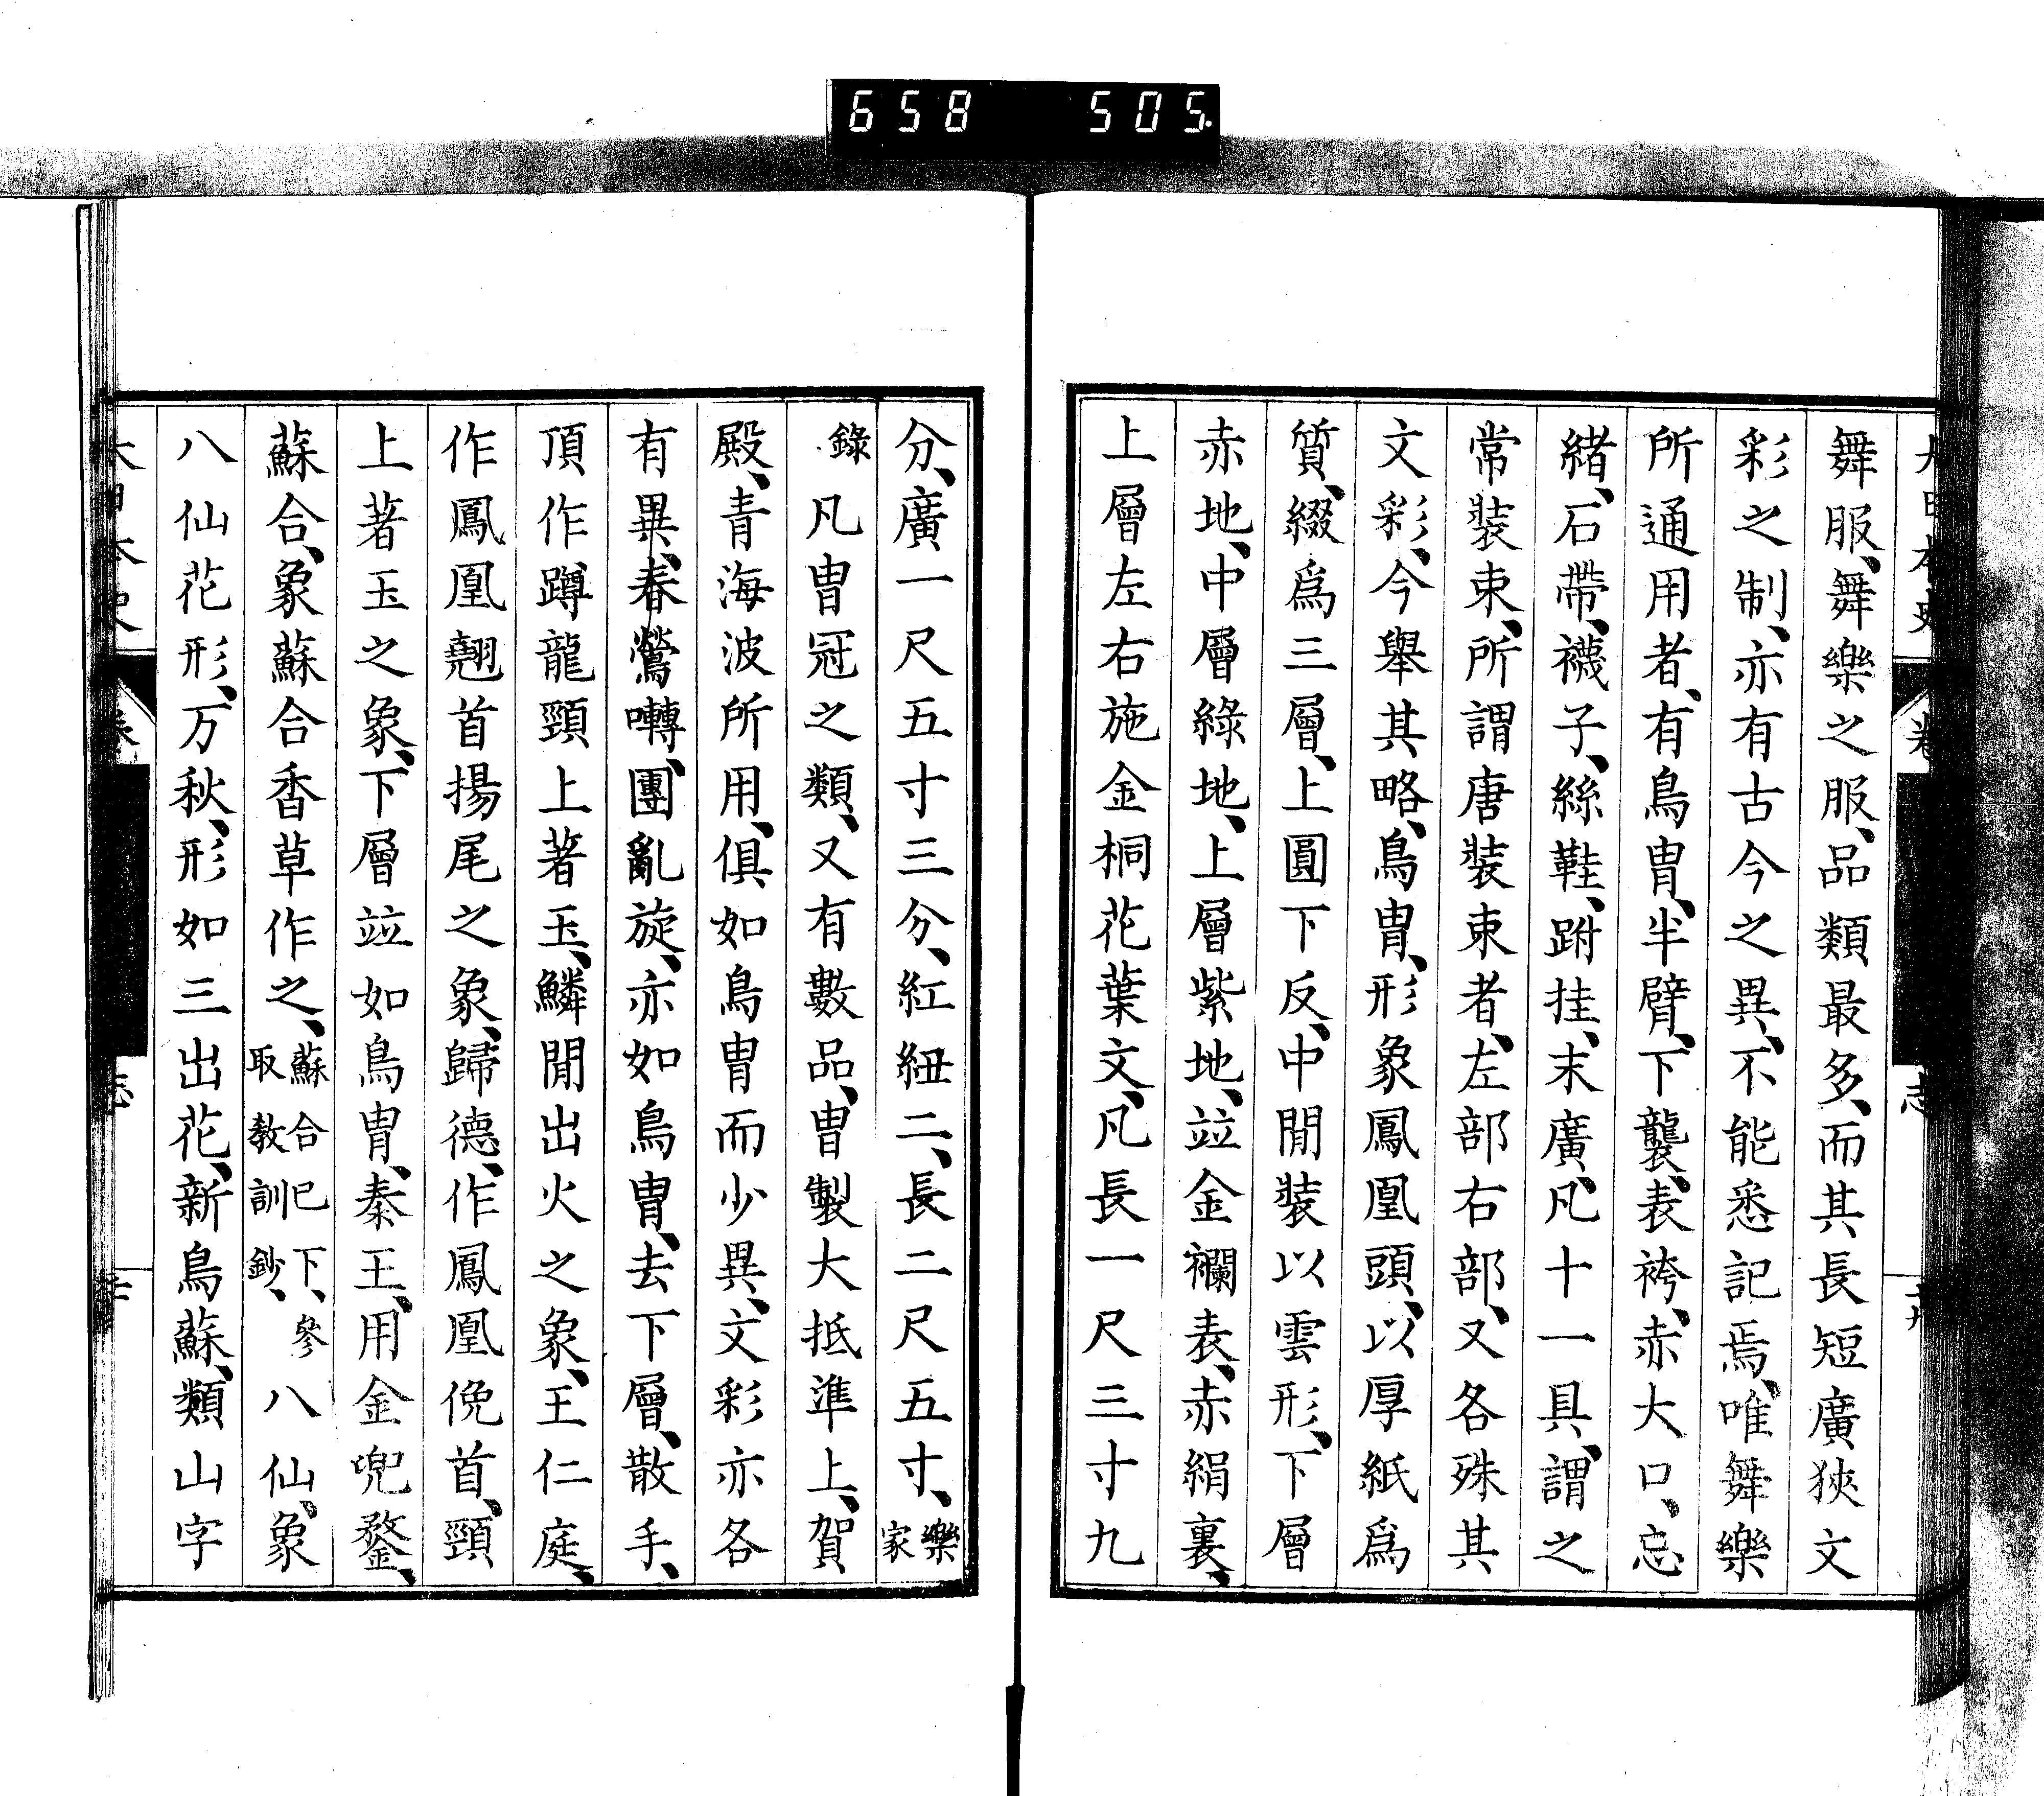 658 505
舞服、舞樂之服、品類最多、而其長短廣狹文
彩之制、亦有古今之異、不能悉記焉、唯舞樂
所通用者、有鳥冑、半臂、下襲、表袴、赤大口、忘
緒、石帶、襪子、絲鞋、跗挂、末廣、凡十一具、謂之
常裝束、所謂唐裝束者、左部右部、又各殊其
文彩、今舉其略、鳥冑、形象鳳凰頭、以厚紙爲
質、綴爲三層、上圓下反、中閒裝以雲形、下層
赤地、中層綠地、上層紫地、竝金襴表、赤絹裏、
上層左右施金桐花葉文、凡長一尺三寸九
分、廣一尺五寸三分、紅紐二、長二尺五寸、樂家
錄凡冑冠之類、又有數品、冑製大抵準上、賀
殿、青海波所用、俱如鳥冑而少異、文彩亦各
有異、春鶯囀、團亂旋、亦如鳥冑、去下層、散手、
頂作蹲龍、頸上著玉、鱗閒出火之象、王仁庭、
作鳳凰翹首揚尾之象、歸德、作鳳凰俛首、頸
上著玉之象、下層竝如鳥冑、秦王、用金兜鍪、
蘇合、象蘇合香草作之、蘇合已下、參取教訓鈔、八仙、象
八仙花形、万秋、形如三出花、新鳥蘇、類山字